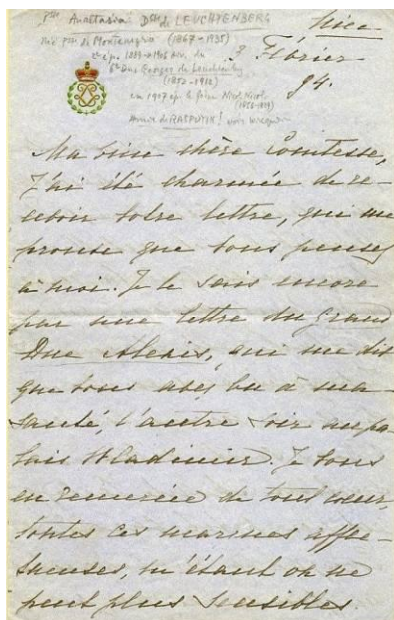 Pcsse Anastasia Dsse de LEUCHTENBERG
née pcsse de Montenegro (1867-1935)
1889-1906 div. du
Duc Georges de Leuchtenberg
(1852-1912)
en 1907 ép. le
Amie de RASPUTIN!
Nice
Février
94.
Ma bien chère Comtesse,
J'ai été charmée de re-
cevoir votre lettre, qui me
prouve que vous pensez
à moi. Je le sais encore
par une lettre du Grand
Duc Alexis, qui me dit
que vous avez bu à ma
santé, l'autre soir au pa-
lais Wladimir. Je vous
en remercie de tout cœur,
toutes ces marques affec-
tueuses, m'étant on ne
peut plus sensibles.